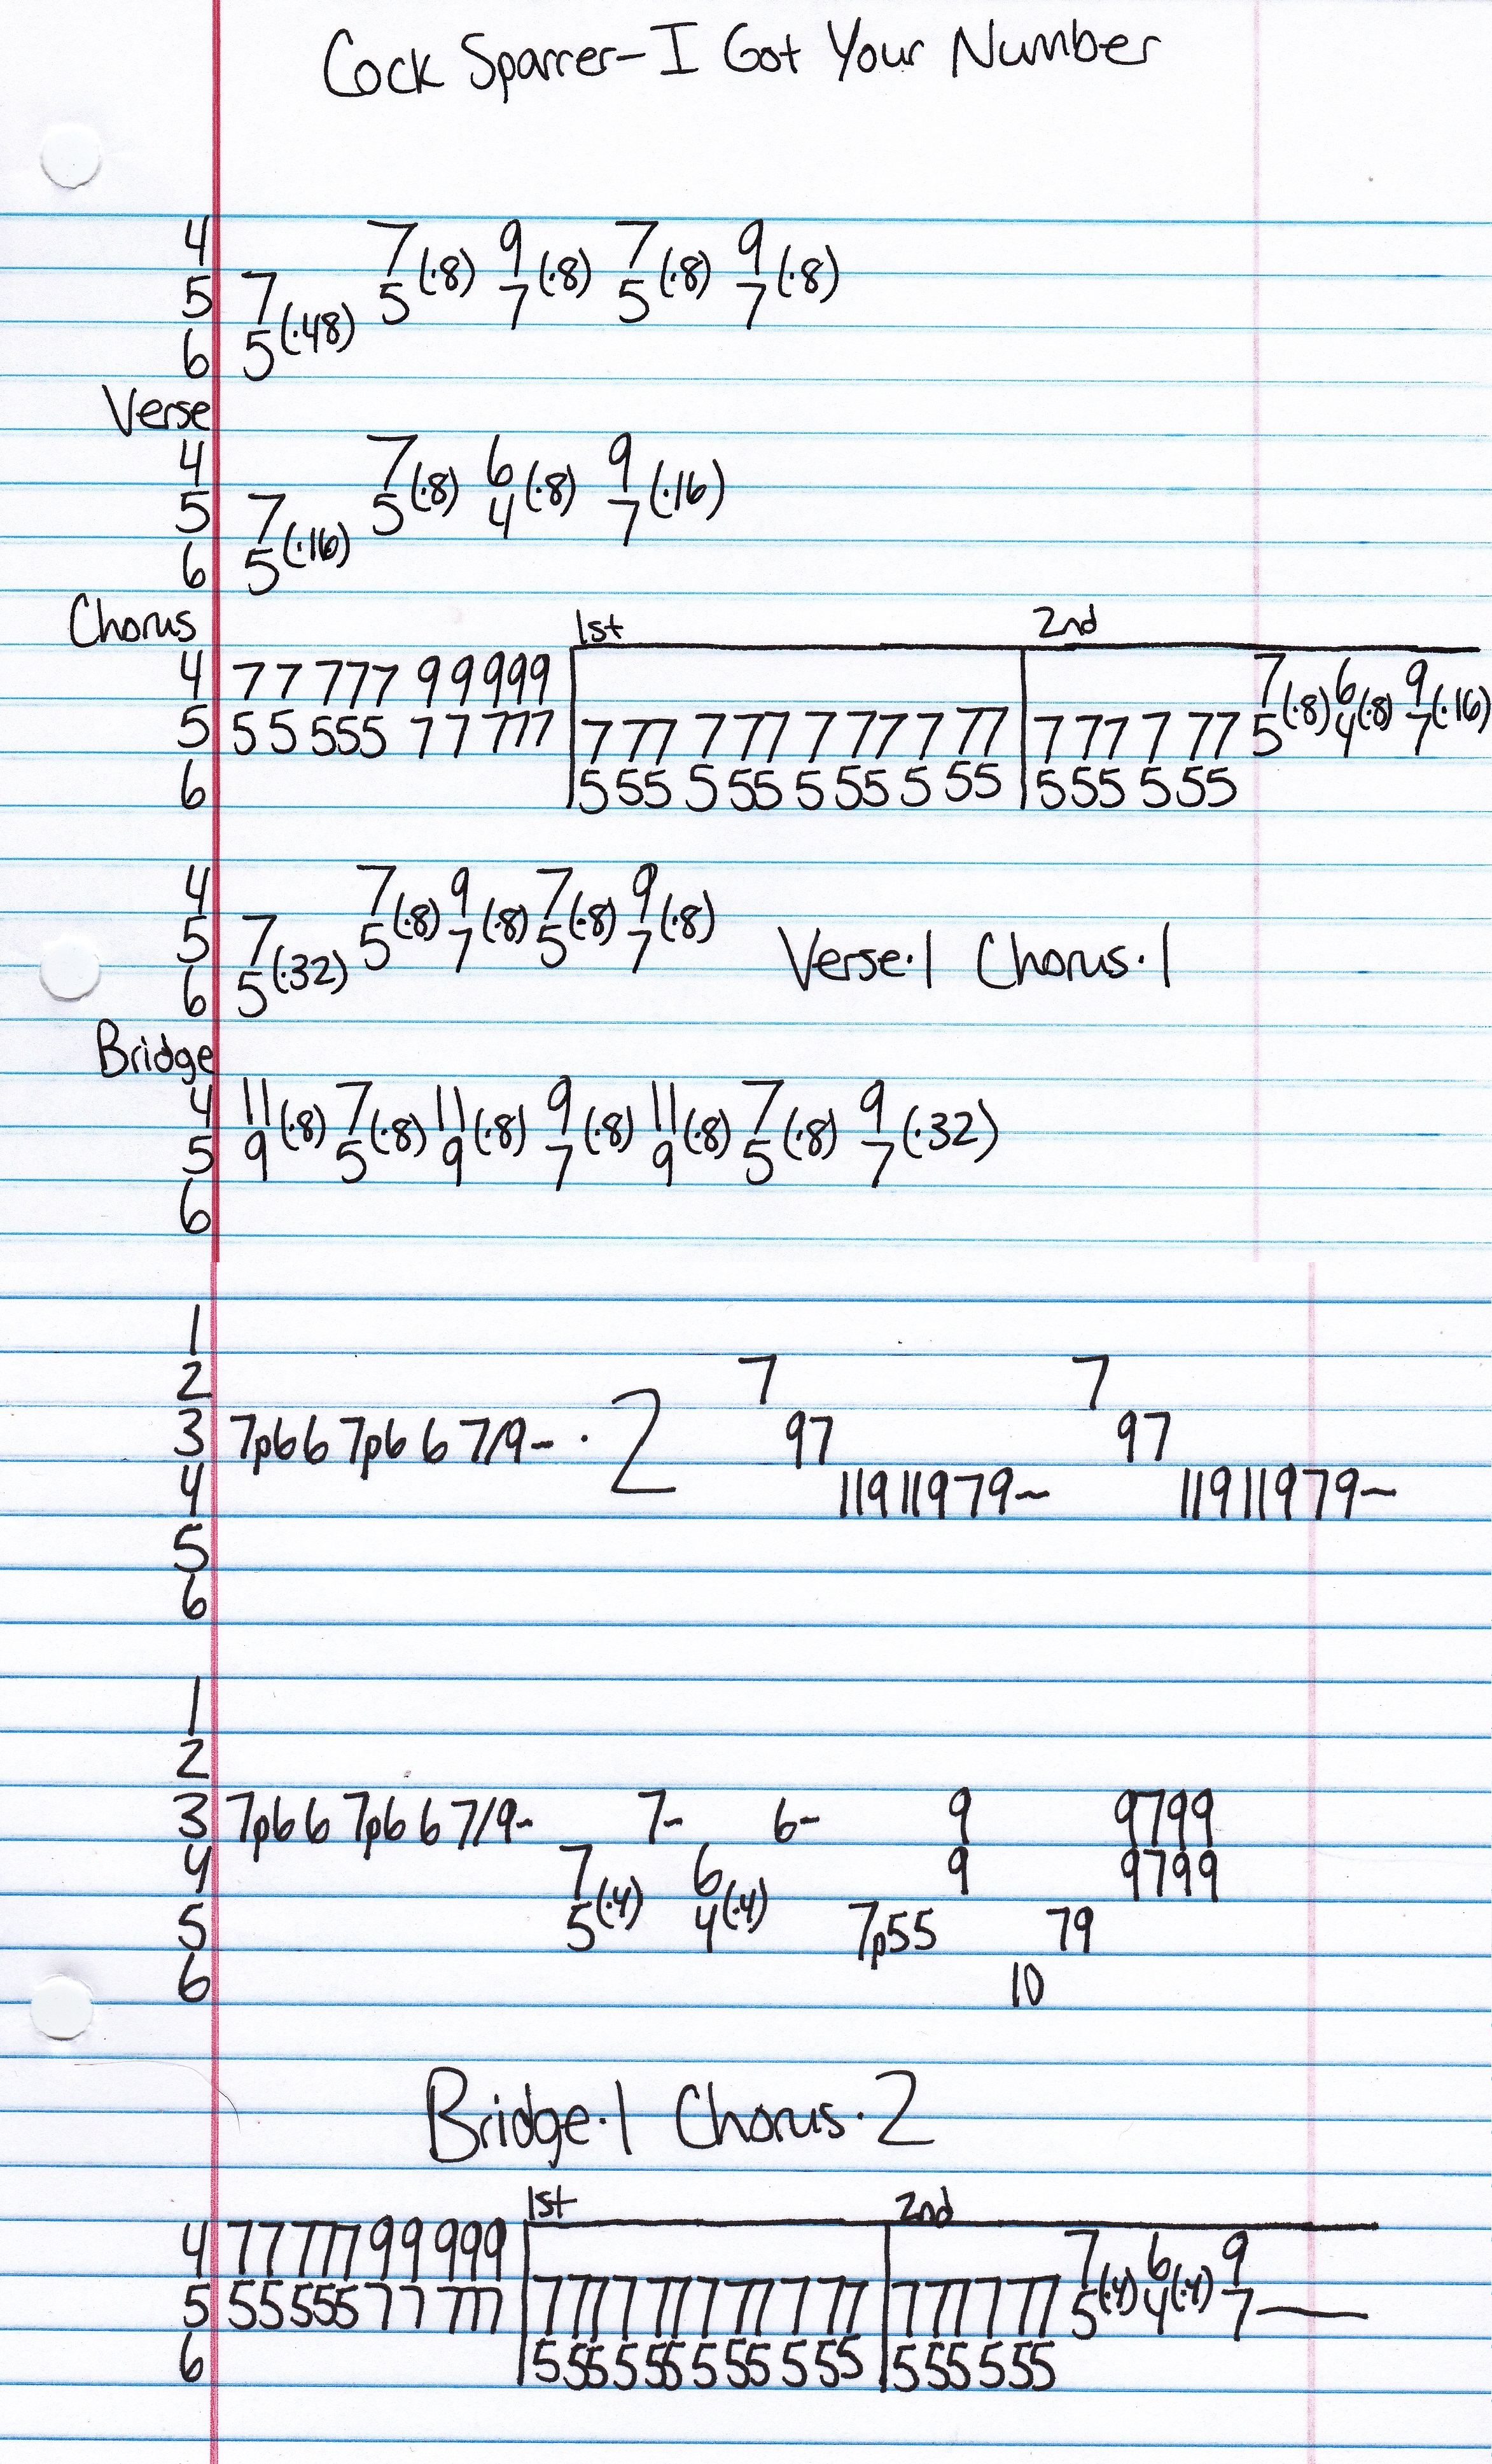 Cock Sparrer-I Got Your Number
4 7 9 7 9
5 7 5(·8) 7(·8) 5(·8) 7(·8)
6 5(·48)
Verse
4 7 6 9
5 7 5(·8) 4(·8) 7(·16)
6 5(·16)
Chorus 1st 2nd
4 7 7 777 9 9 999 7 6 9
5 5 5 555 7 7 777 7 777 777 7 777 7 77 7 777 7 77 5(·8) 4(·8) 7(·16)
6 5 55 5 55 5 55 5 55 5 55 5 55
4 7 9 7 9
5 7 5(·8) 7(·8) 5(·8) 7(·8) Verse·1 Chorus·1
6 5(·32)
Bridge
4 11 7 11 9 11 7 9
5 9(·8) 5(·8) 9(·8) 7(·8) 9(·8) 5(·8) 7(·32)
6
1
2 7 7
3 7p66 7p6 6 7/9- · 2 97 97
4 119 119 79~ 119 119 79~
5
6
1
2
3 7p66 7p6 6 7/9- 7- 6- 9 9799
4 7 6 9 9799
5 5(·4) 4(·4) 7p55 79
6 10
Bridge·1 Chorus·2
1st 2nd
4 77 777 99 999 7 6 9
5 55 555 77 777 7 77 7 77 7 77 7 77 7 77 7 77 5(·4) 4(·4) 7—
6 5 55 5 55 5 55 5 55 5 55 5 55